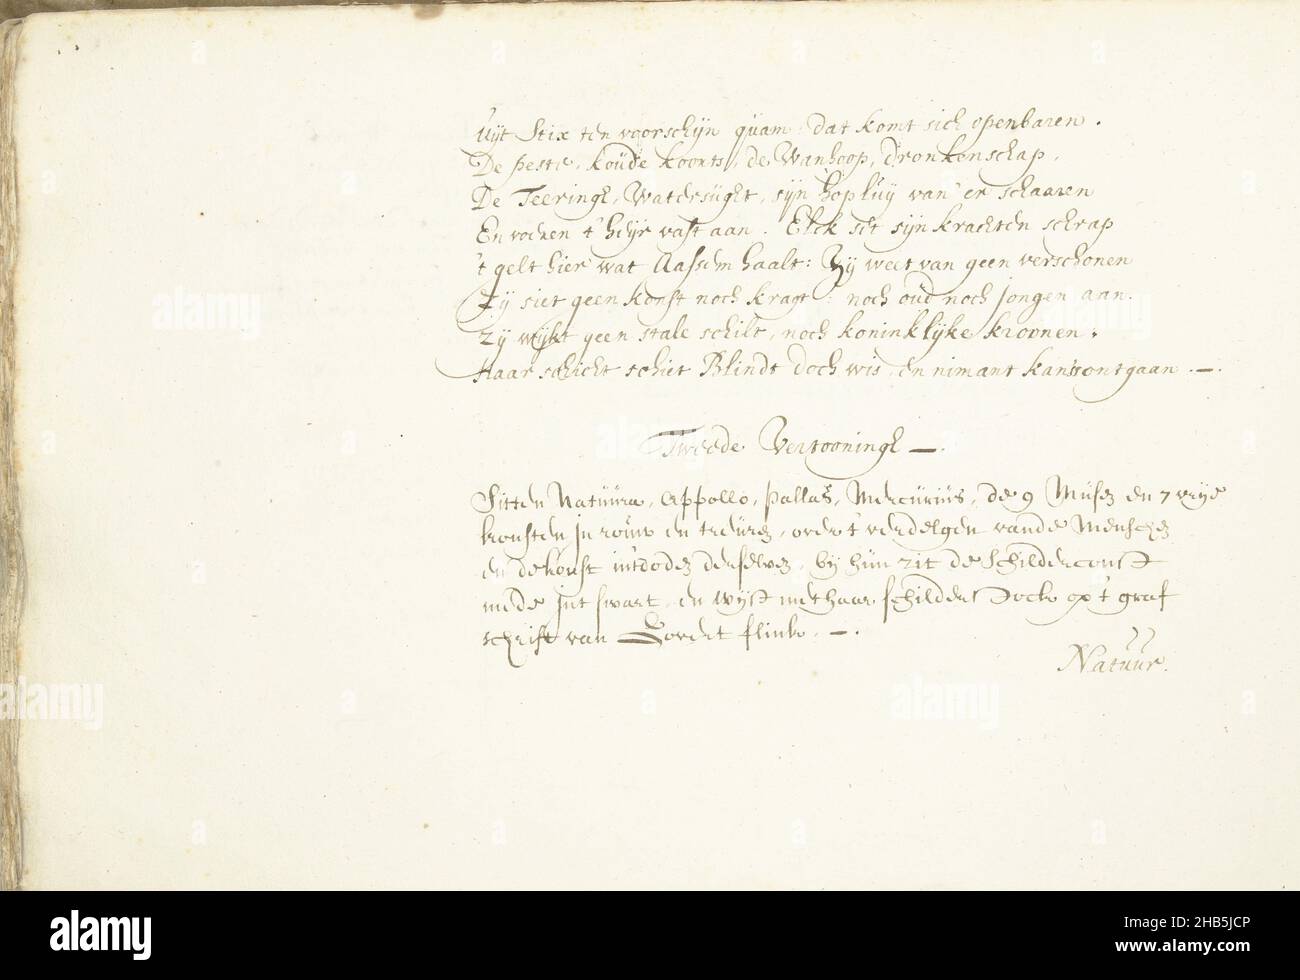 Uÿt Stix ten voorschÿn quam, dat komt sich openbaren.
De peste, koude koorts, de Wanhoop, dronkenschap,
De Teeringh, Watersught, sÿn hopluÿ van er schaaren
En voeren 't heÿr vast aan. Elck set sÿn krachten schrap
't gelt hier wat Aassem haalt: Zÿ weet van geen verschonen
Zÿ siet geen konst noch kragt: noch oud noch jongen aan.
Zÿ wÿkt geen stale schilt, noch koninklÿke kroonen.
Haar schicht schiet Blindt doch wis, en nimant kan't ontgaan. —.
Tweede Vertooningh —.
Sitten Natuura, Appollo, Pallas, Mercurius, de 9 Musen en 7 vrÿe
konsten in rouw en treuren, over 't verdelgen vande Menschen
en de konst int doden derselven, bÿ hun zit de Schilderconst
mede int swart, en wÿst met haar schilder stock op 't graf
schrift van Govert flink. —.
Natuur.
alamy
2HB5JCP
Image ID: 2HB5JCP
www.alamy.com